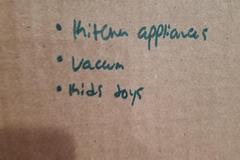 • Kitchen appliances
• Vacuum
• Kids toys